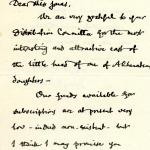 Dear Miss Jonas,
We are very grateful to your
Distribution Committee for the most
interesting and attractive cast of
the little head of one of Akhenaten's
daughters —
Our funds available for
subscriptions are at present very
low - indeed non-existent - but
I think I may promise you